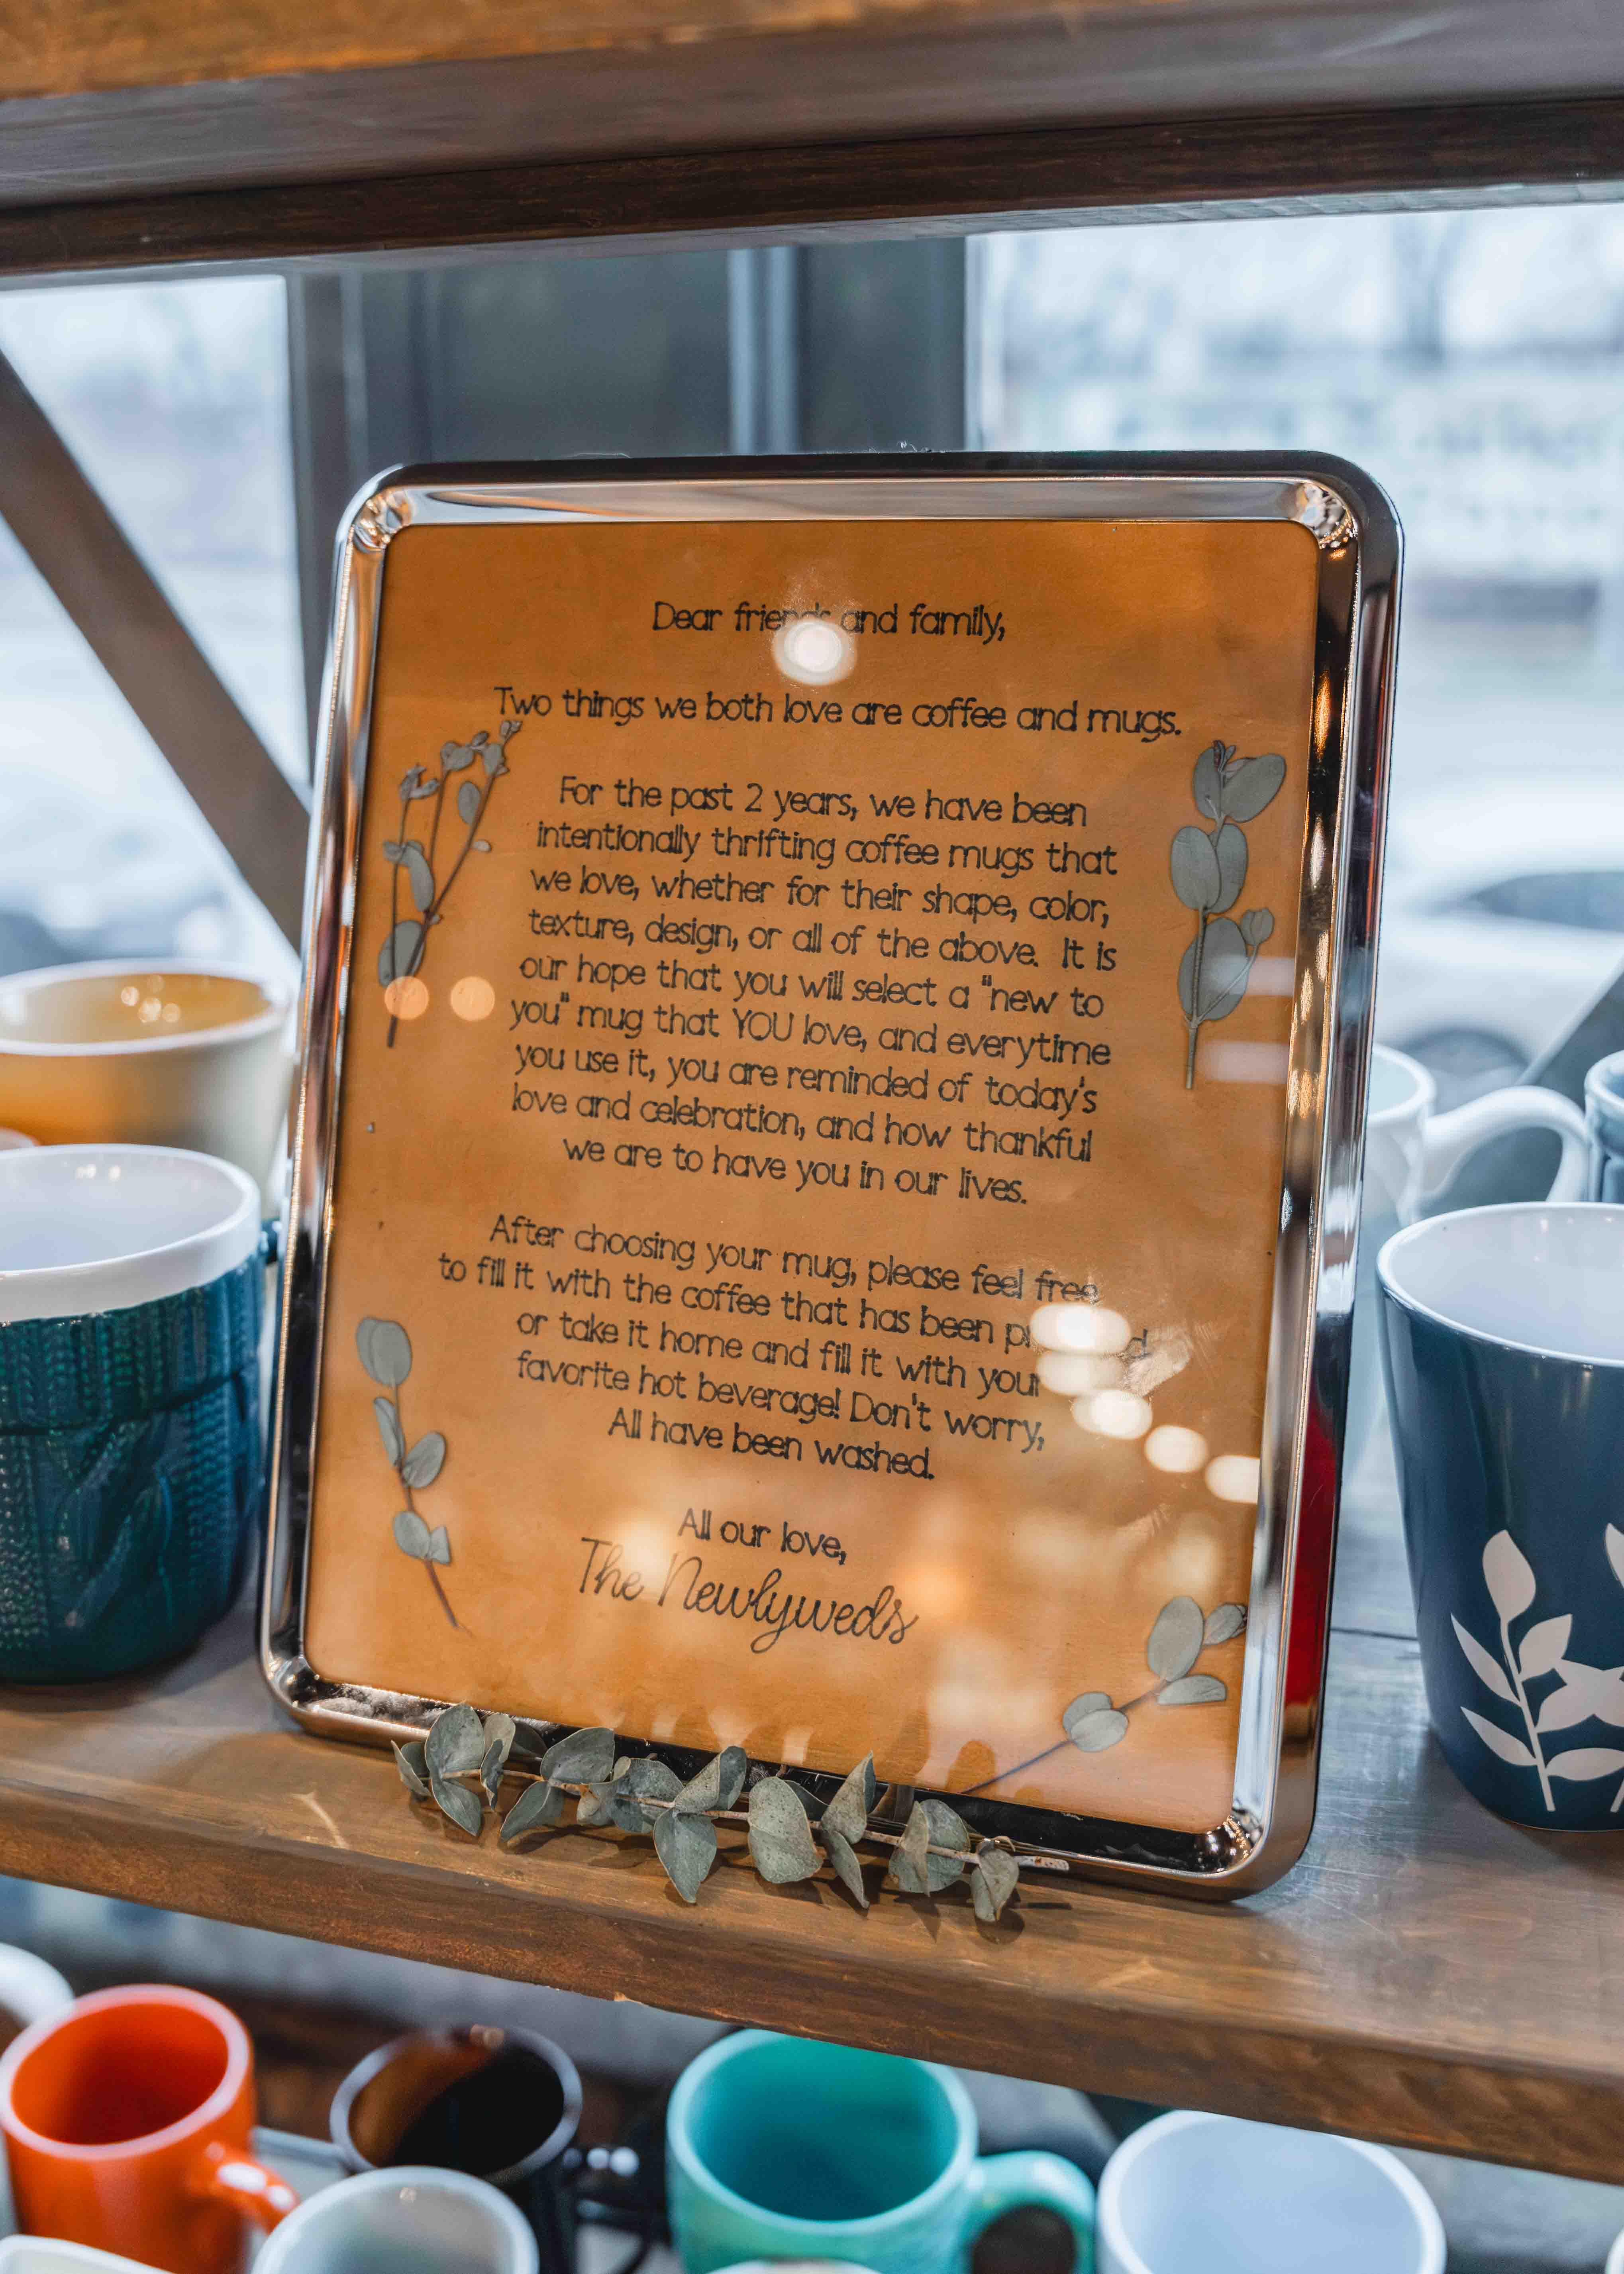 Dear friends and family,
Two things we both love are coffee and mugs.
For the past 2 years, we have been
intentionally thrifting coffee mugs that
we love, whether for their shape, color,
texture, design, or all of the above. It is
our hope that you will select a "new to
you" mug that YOU love, and everytime
you use it, you are reminded of today's
love and celebration, and how thankful
we are to have you in our lives.
After choosing your mug, please feel free
to fill it with the coffee that has been
or take it home and fill it with your
favorite hot beverage! Don't worry,
All have been washed.
All our love,
The Newlyweds